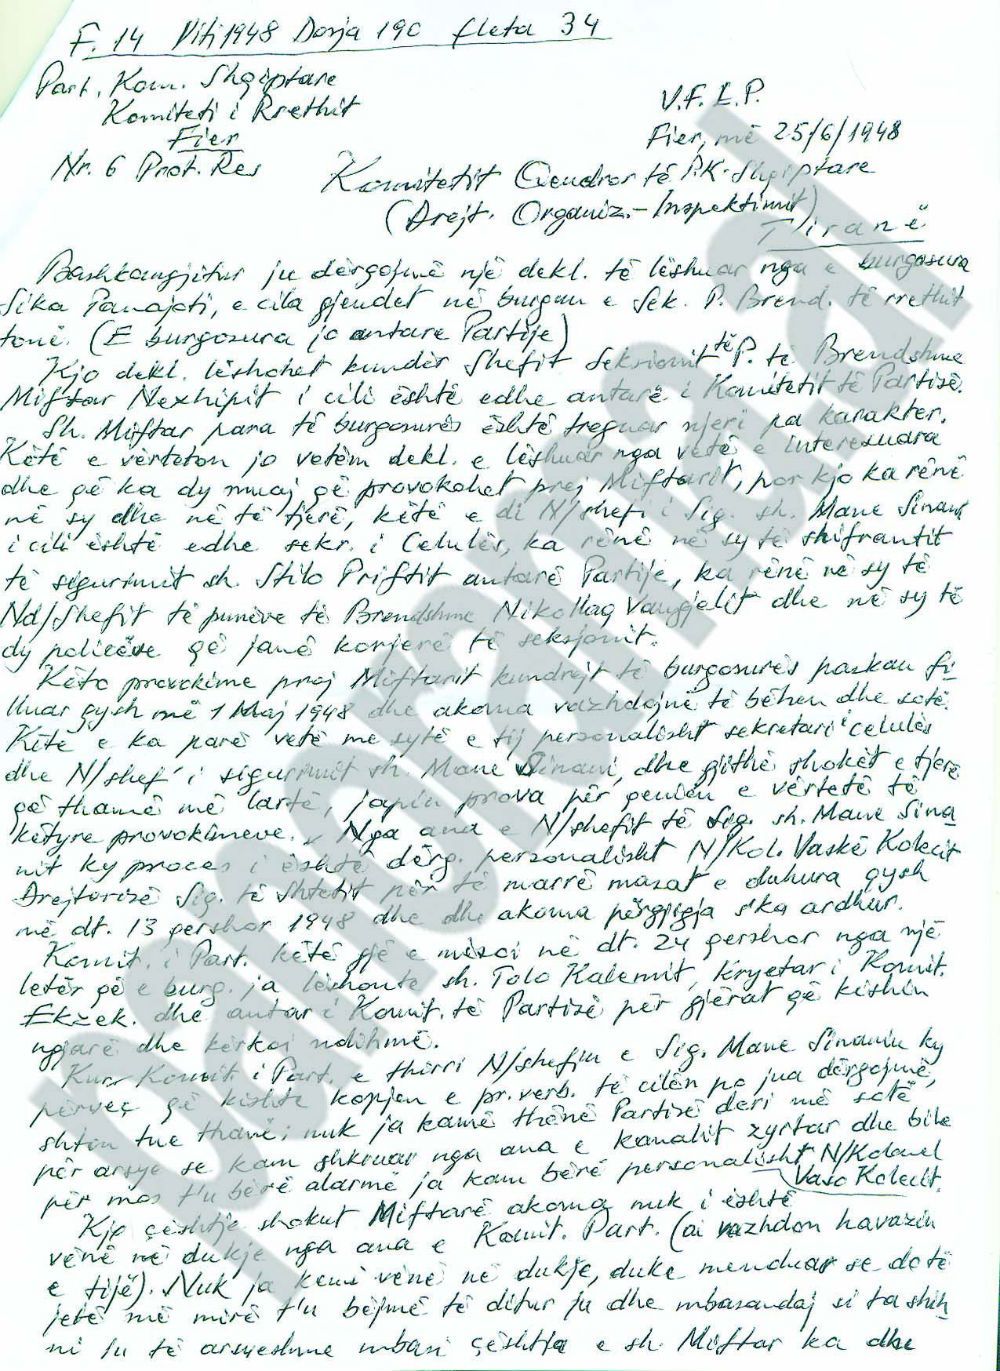 F. 14 Viti 1948 Dosja 190 fleta 34
Part. Kom. Shqiptare
Komiteti i Rrethit
Fier
Nr. 6 Prot. Res
V.F.L.P.
Fier, më 25/6/1948
Komitetit Qendror të P.K. Shqiptare
(Drejt. Organiz.-Inspektimit)
Tiranë
Bashkangjitur ju dërgojmë një dekl. të lëshuar nga e burgosura
Sika Panajoti, e cila gjendet në burgun e Sek. P. Brend. të rrethit
tonë. (E burgosura jo antare Partije)
Kjo dekl. lëshohet kundër Shefit Seksionit të P. të Brendshme
Miftar Nexhipit i cili është edhe antarë i Komitetit të Partisë.
Sh. Miftar para të burgosurës është treguar njeri pa karakter.
Këtë e vërteton jo vetëm dekl. e lëshuar nga vetë e interesuara
dhe që ka dy muaj që provokohet prej Miftarit, por kjo ka rënë
në sy dhe në të tjerë, këtë e di N/shefi i Sig. sh. Mane Sinani
i cili është edhe sekr. i Celulës, ka rënë në sy të shifrantit
të sigurimit sh. Stilo Priftit antarë Partije, ka rënë në sy të
Nd/Shefit të punëve të Brendshme Nikollaq Vangjelit dhe në sy të
dy policëve që janë korjerë të seksjonit.
Këto provokime prej Miftarit kundrejt të burgosurës paskan fi
lluar qysh më 1 Maj 1948 dhe akoma vazhdojnë të bëhen dhe sotë.
Këtë e ka parë vetë me sytë e tij personalisht sekretari i celulës
dhe N/shef i sigurimit sh. Mane Sinani, dhe gjithë shokët e tjerë
që thamë më lartë, japin prova për qenien e vërtetë të
këtyre provokimeve. Nga ana e N/shefit të Sig. sh. Mane Sina
nit ky proces i është dërg. personalisht N/Kol. Vaskë Kolecit
Drejtorisë Sig. të Shtetit për të marrë masat e duhura qysh
më dt. 13 qershor 1948 dhe dhe akoma përgjigja s'ka ardhur.
Komit. i Part. këtë gjë e mësoi në dt. 24 qershor nga një
letër që e burg. ja lëshonte sh. Tolo Kalemit, Kryetar i Komit.
Ekzek. dhe antar i Komit. të Partisë për gjërat që kishin
ngjarë dhe kërkoi ndihmë.
Kur Komit i Part. e thirri N/shefin e Sig. Mane Sinanin ky
përveç që kishte kopjen e pr. verb. të cilën po jua dërgojmë,
shton tue thanë: nuk ja kamë thënë Partisë deri më sotë
për arsye se kam shkruar nga ana e kanalit zyrtar dhe bile
për mos t'u bërë alarmë ja kam bërë personalisht N/Kolonel
Vaso Kolecit.
Kjo çështje shokut Miftarë akoma nuk i është
vënë në dukje nga ana e Komit. Part. (ai vazhdon havazin
e tijë). Nuk ja kemi vënë në dukje, duke menduar se do të
jetë më mirë t'u bëjmë të ditur ju dhe mbasandaj si ta shih
ni ju të arsyeshme mbasi çështja e sh. Miftar ka dhe